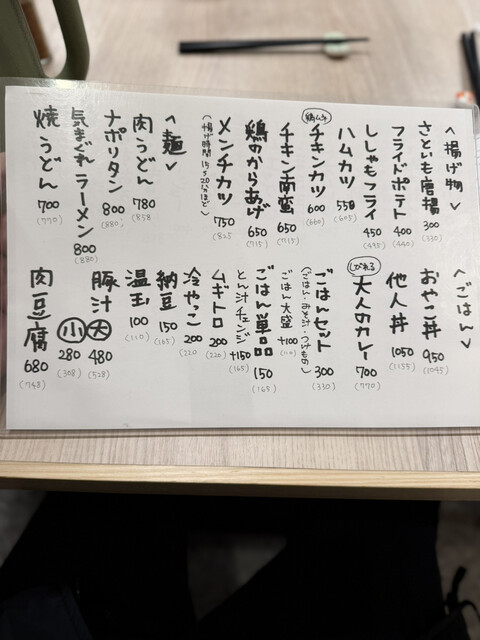 <揚げ物>
さといも唐揚 300
(330)
フライドポテト 400
(440)
ししゃもフライ 450
(495)
ハムカツ 550
(605)
鶏ムネ
チキンカツ 600
(660)
チキン南蛮 650
(715)
鶏のからあげ 650
(715)
メンチカツ 750
(825
(揚げ時間15〜20分ほど)
<麺>
肉うどん 780
(858
ナポリタン 800
(880)
気まぐれラーメン 800
(880)
焼うどん 700
(770)
<ごはん>
おやこ丼 950
(1045)
他人丼 1050
(1155)
しびれる
大人のカレー 700
(770)
ごはんセット 300
(330)
(ごはん・おみそ汁・つけもの)
ごはん大盛 +100
(110)
ごはん単品 150
(165)
とん汁チェンジ +150
(165)
ムギトロ 200
(220)
冷やっこ 200
(220)
納豆 150
(165)
温玉 100
(110)
豚汁
大 480
(528)
小 280
(308)
肉豆腐 680
(748)